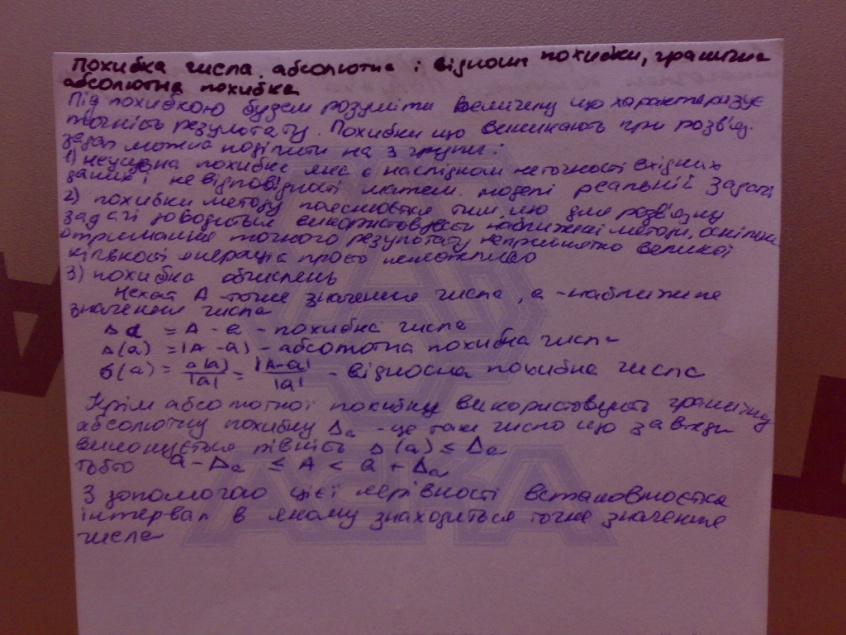 Похибка числа, абсолютна і відносні похибки, гранична
абсолютна похибка
Під похибкою будем розуміти величину що характеризує
точність результату. Похибки що виникають при розв'яз.
задач можна поділити на 3 групи:
1) неусувна похибка яка є наслідком неточності вхідних
даних і невідповідності матем. моделі реальній задачі
2) похибки методу пояснюється тим, що для розв'язку
задачі доводиться використовувати наближені методи, оскільки
отримання точного результату неприйнятно великої
кількості операцій просто неможливо
3) похибка обчислень
Нехай A - точне значення числа, a - наближене
значення числа
Δa = A - a - похибка числа
Δ(a) = |A - a| - абсолютна похибка числа
δ(a) = Δ(a)/|a| = |A-a|/|a| - відносна похибка числа
Крім абсолютної похибки використовують граничну
абсолютну похибку Δa - це таке число що завжди
виконується рівність Δ(a) ≤ Δa
тобто a - Δa ≤ A < a + Δa
З допомогою цієї нерівності встановлюється
інтервал в якому знаходиться точне значення
числа